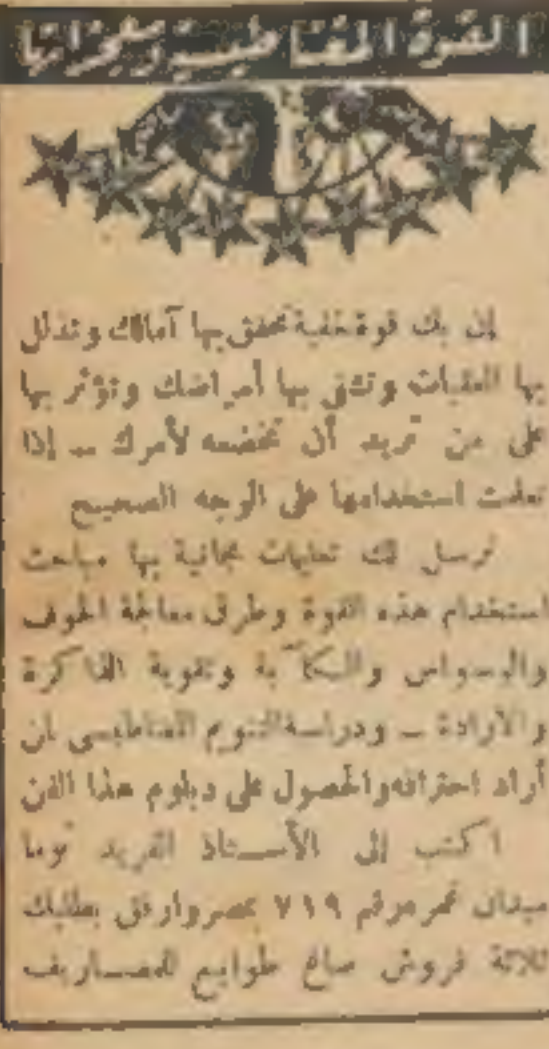 القوة المغناطيسية ومعجزاتها
إن بك قوة خفية تحقق بها آمالك وتذلل
بها العقبات وتشفى بها أمراضك وتؤثر بها
على من تريد أن تخضعه لأمرك – إذا
تعلمت استخدامها على الوجه الصحيح
نرسل لك تعليمات مجانية بها مباحث
استخدام هذه القوة وطرق معالجة الخوف
والوسواس والكآبة وتقوية الذاكرة
والارادة – ودراسة التنويم المغناطيسى لمن
أراد احترافه والحصول على دبلوم هذا الفن
اكتب إلى الأستاذ الفريد توما
ميدان غمره رقم ٧١٩ بمصر وارفق بطلبك
ثلاثة قروش صاغ طوابع للمصاريف